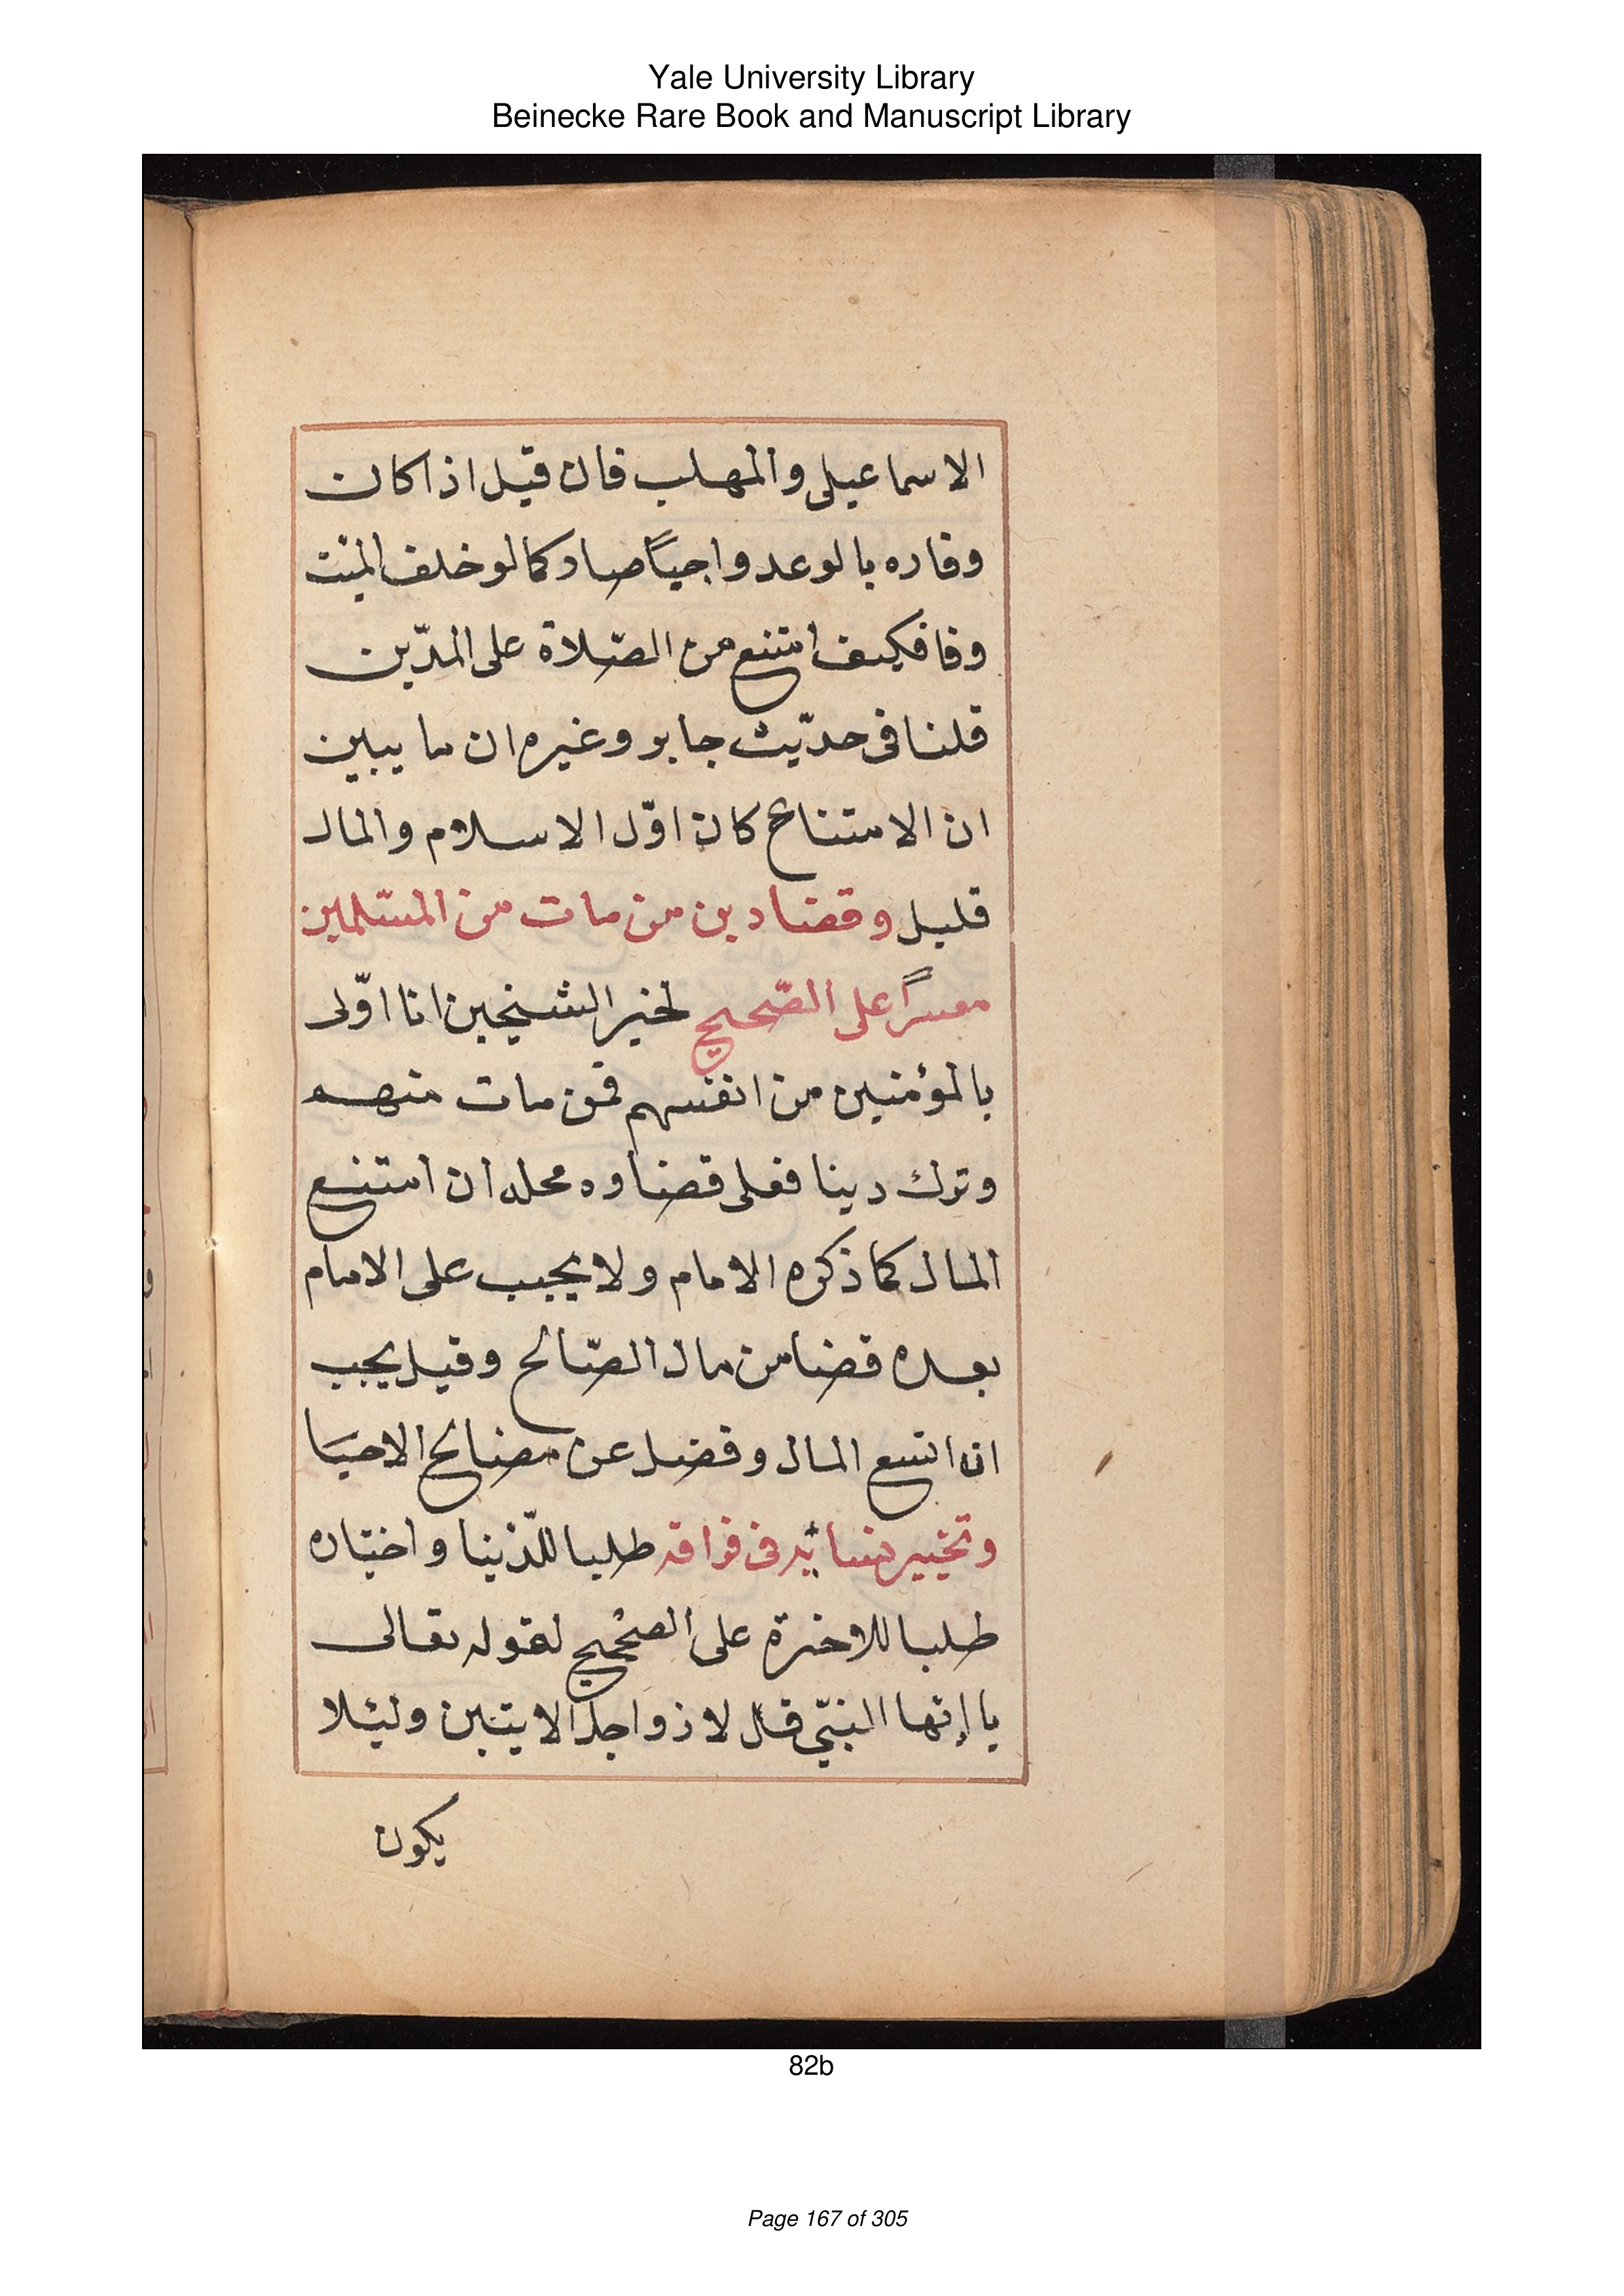 Yale University Library
Beinecke Rare Book and Manuscript Library
الاسماعيلى والمهلب فان قيل اذا كان
وفاره بالوعد واجباً صار كما لو خلف الميت
وفا فكيف امتنع من الصّلاة على المدّين
قلنا فى حدّيث جابر وغيره ان ما يبين
ان الامتناع كان اوّل الاسلام والمال
قليل وقضا دين من مات من المسّلمين
معسراً على الصّحيح لخبر الشيخين انا اوّلى
بالمؤمنين من انفسهم فمن مات منهم
وترك دينا فعلى قضاوه محله ان امتنع
المال كما ذكره الامام ولا يجب على الامام
بعده قضا من مال الصّالح وقيل يجب
ان اتسع المال وفضل عن مصالح الاحيا
وتخيير نسائه فى فراقه طلبا للدّنيا واختاره
طلبا للاخرة على الصحيح لقوله تعالى
يا ايها النبىّ قل لازواجك الايتين ولئلا
يكون
82b
Page 167 of 305